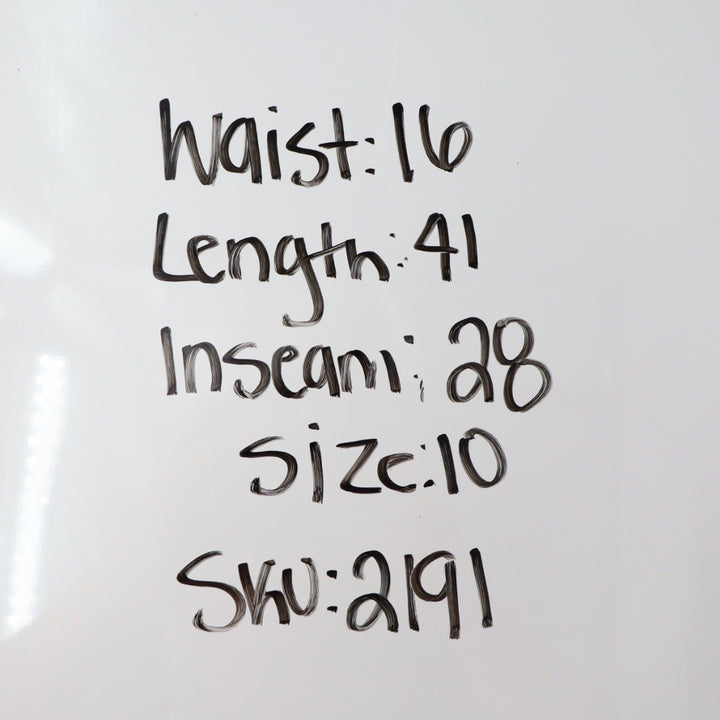 Waist: 16
Length: 41
Inseam: 28
Size: 10
SKU: 2191